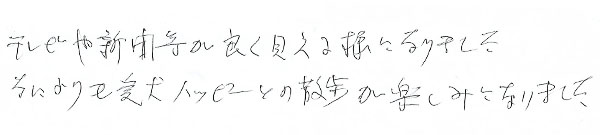 テレビや新聞等が良く見える様になりました
なによりも愛犬ハッピーとの散歩が楽しみになりました